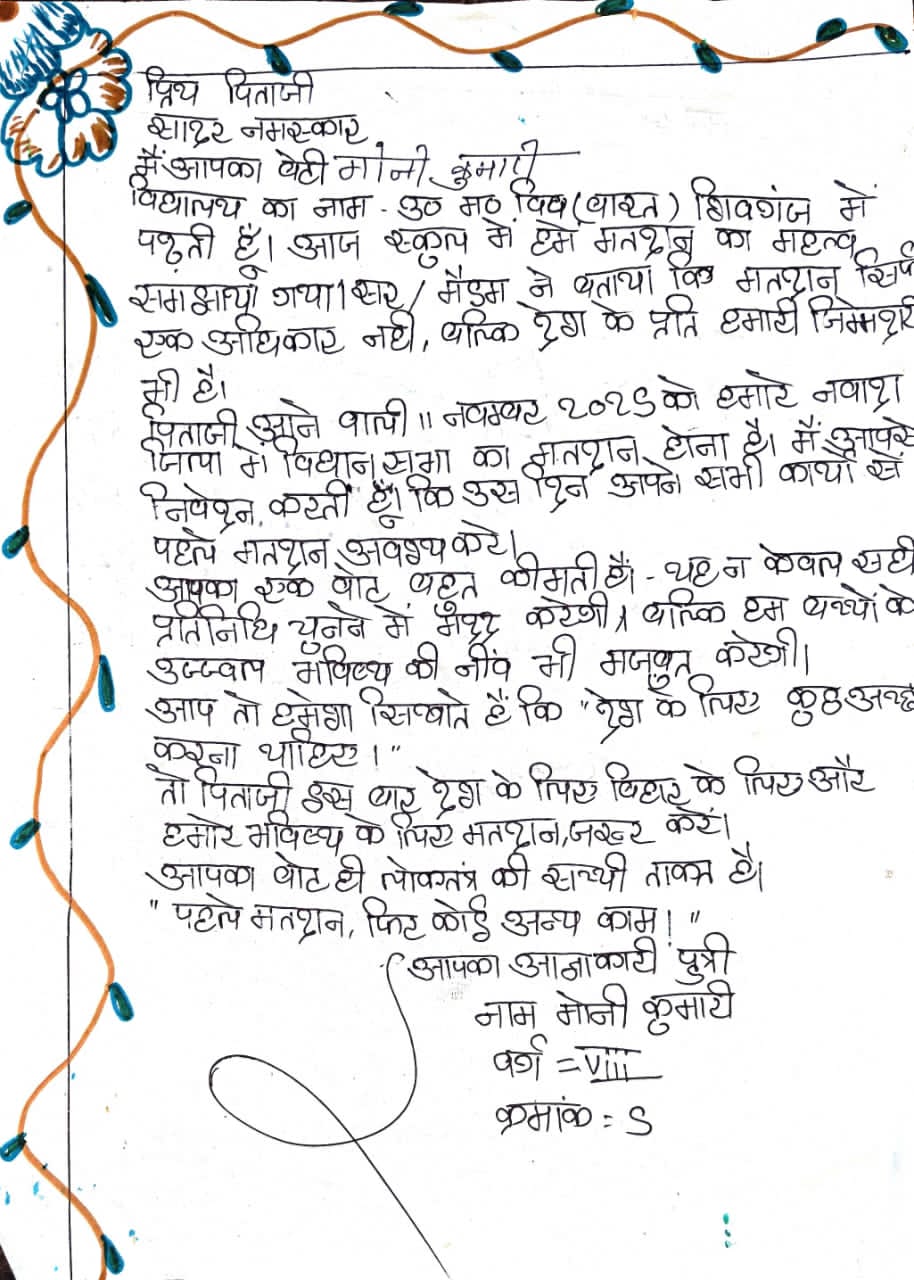 प्रिय पिताजी
सादर नमस्कार
मैं आपका बेटी मोनी कुमारी
विद्यालय का नाम - उ० म० वि० (वारत) शिवगंज में
पढ़ती हूँ। आज स्कुल में हमें मतदान का महत्व
समझाया गया। सर / मैडम ने बताया कि मतदान सिर्फ
एक अधिकार नही, बल्कि देश के प्रति हमारी
भी है।
पिताजी आने वाली 11 नवम्बर 2025 को हमारे नवादा
जिला में विधान सभा का मतदान होना है। मैं आपसे
निवेदन करती हूँ कि उस दिन अपने सभी कार्यो से
पहले मतदान अवश्य करे।
आपका एक वोट बहुत कीमती हैं। - यह न केवल सही
प्रतिनिधि चुनने में मदद करेगी। बल्कि हम बच्चों के
उज्ज्वल भविष्य की नींव भी मजबुत करेगी।
आप तो हमेशा सिखाते हैं कि "देश के लिए कुछ अच्छा
करना चाहिए।"
तो पिताजी इस बार देश के लिए बिहार के लिए और
हमारे भविष्य के लिए मतदान जरूर करें।
आपका वोट ही लोकतंत्र की सच्ची ताकत है।
"पहले मतदान, फिर कोई अन्य काम!"
आपका आज्ञाकारी पुत्री
नाम मोनी कुमारी
वर्ग = VIII
क्रमांक = 5